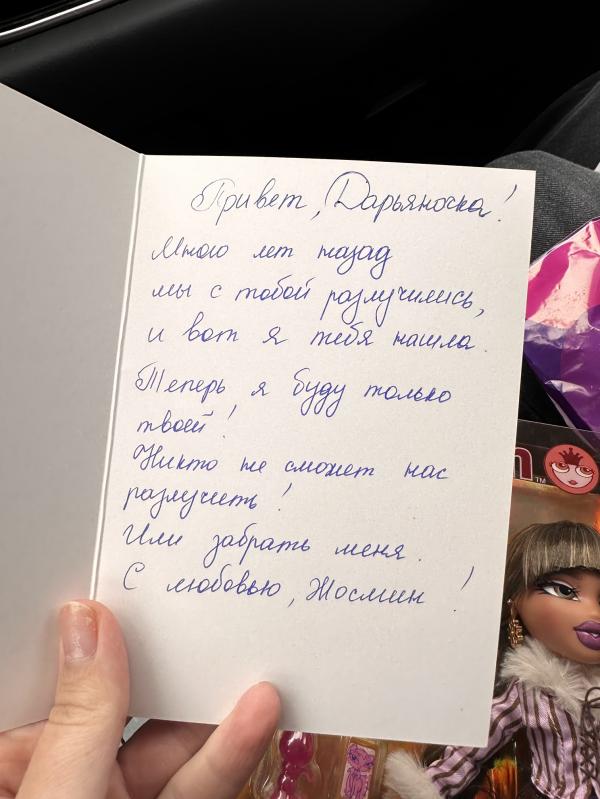 Привет, Дарьяночка!
Много лет назад
мы с тобой разлучились,
и вот я тебя нашла.
Теперь я буду только
твоей!
Никто не сможет нас
разлучить!
Или забрать меня.
С любовью, Жосмин!
TM